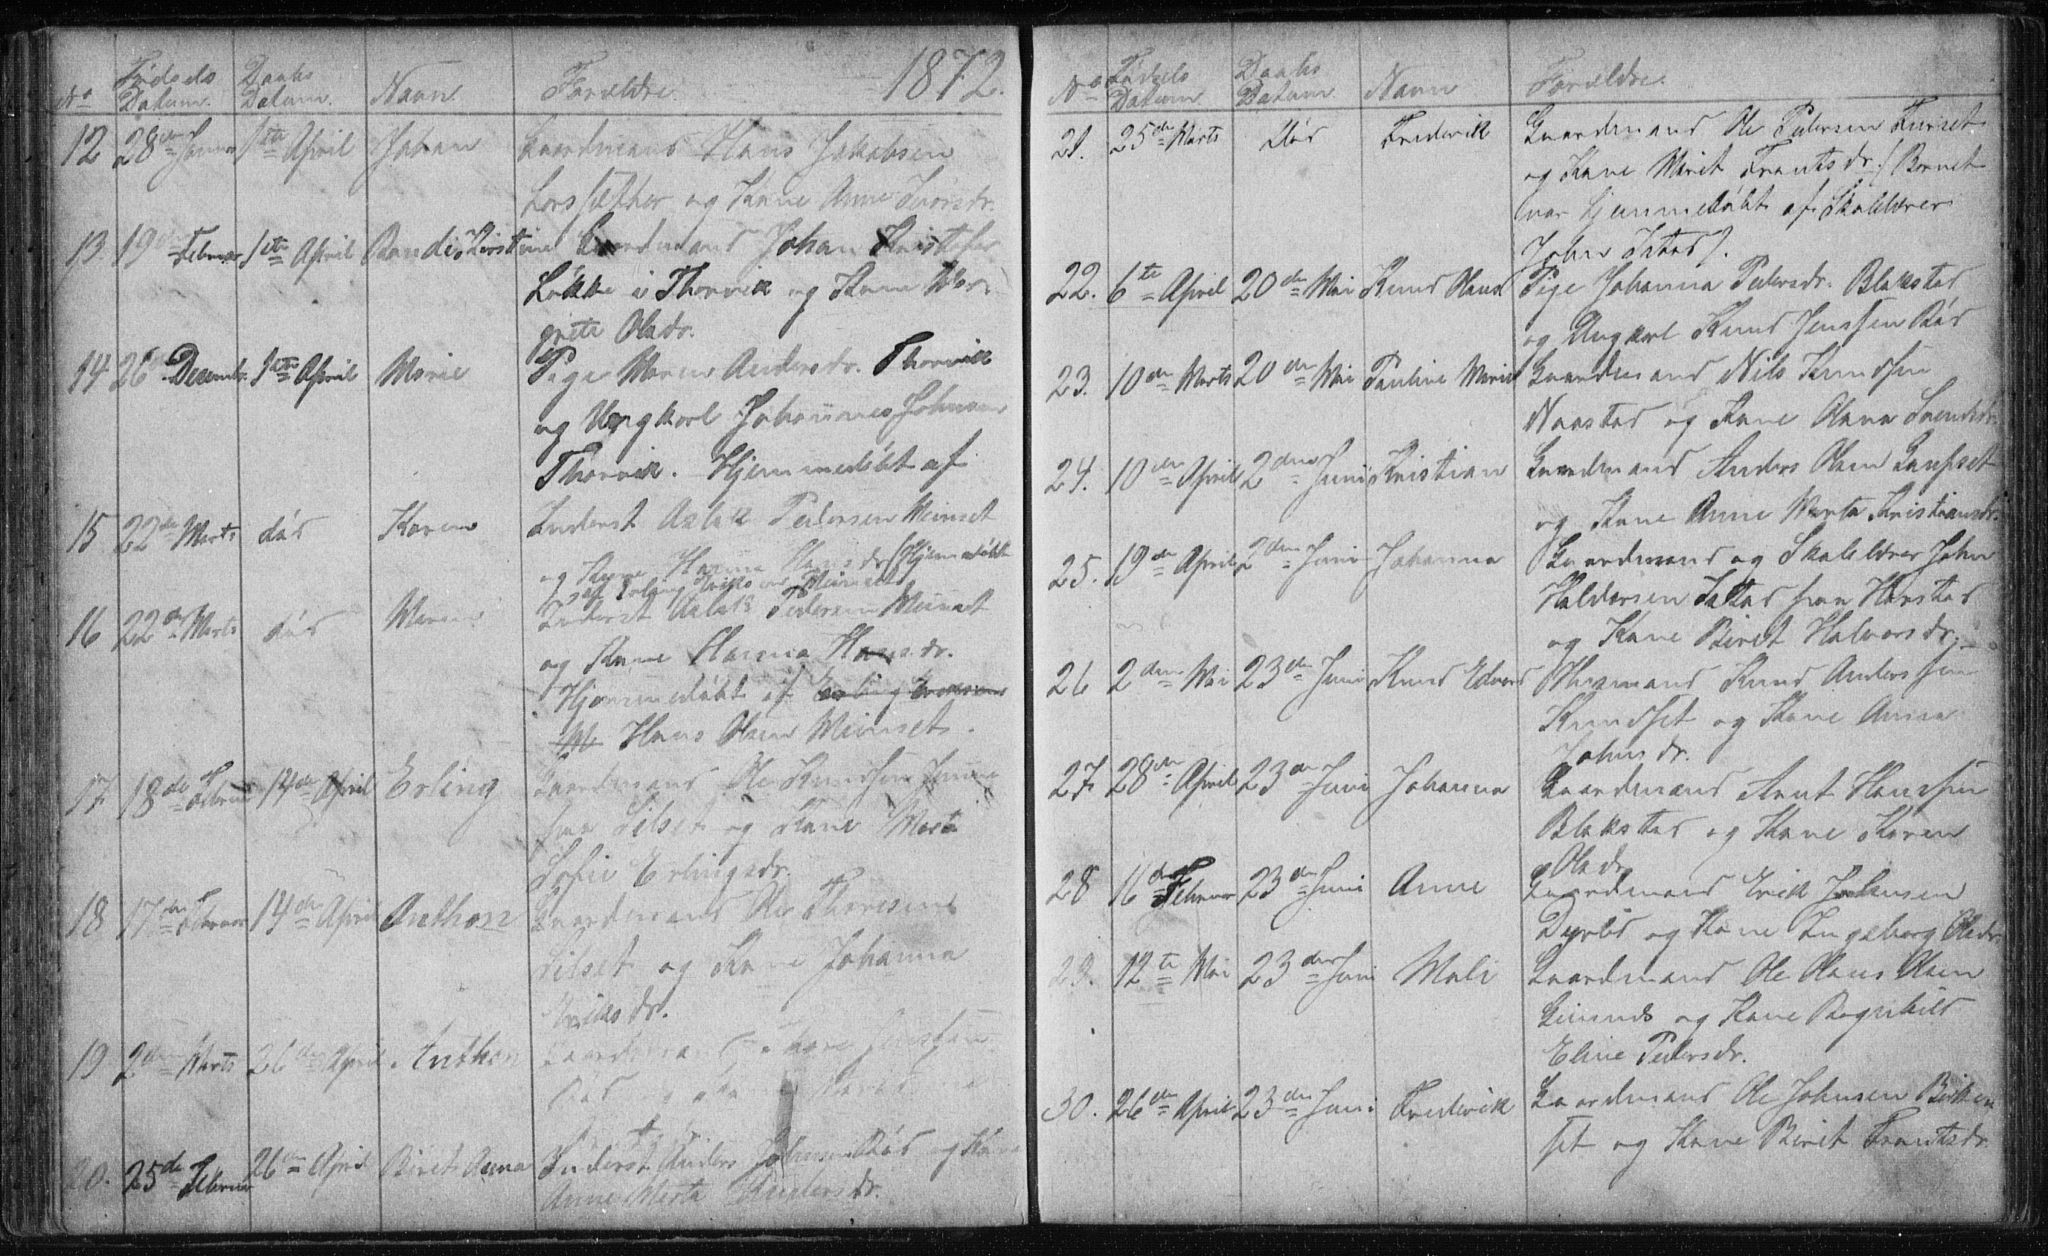 1872.
No Fødsels Datum. Daabs Datum. Navn Forældre
12 28de Januar 1ste April Johan Gaardmand Hans Jakobsen
og Kone Anne
13. 19de Februar 1ste April Randi Kirstine Gaardmand Johan Kristofer
Løkke i Thorvik og Kone Mar-
grete Olsdr.
14 26 Decembr. 1ste April Marie Pige Andersdr. Thorvik
og Ungkarl Johannes Johnsen
Thorvik. Hjemmedøbt af
15 22de Marts død Karen Inderst Aslak Pedersen Meinset
og Kone Hanna Hansdr. (Hjemmedøbt
af Erling Meinset
16 22de Marts død Inderst Aslak Pedersen Meinset
og Kone Hanna Hansdr.
Hjemmedøbt af Erling
Hans Olsen Meinset.
17. 18de Februar 14de April Erling Gaardmand Ole Knudsen
fra Silset og Kone Marta
Sofie Erlingsdr.
18 17de Februar 14de April Anthon Gaardmand Ole Thoresen
Silset og Kone Johanna
Eriksdr.
19 2den Marts 26de April Anthon Gaardmand Thore
Rød og Kone
20. 25de Februar 26de April Berit Anna Inderst Anders Johnsen Rød og Kone
Anne Marta Andersdr.
No Fødsels Datum Daabs Datum Navn Forældre.
21. 25de Marts død Frederik Gaardmand Ole Pedersen Furset
og Kone Marit Frantsdr. (Barnet
var hjemmedøbt af Skolelærer
John Istad).
22. 6te April 20de Mai Knud Hans Pige Johanna Pedersdr. Blakstad
og Ungkarl Knud Jenssen Rød
23. 10de Marts 20de Mai Pauline Marie Gaardmand Nils Knudsen
Naastad og Kone Olava Svendsdr.
24. 10de April 2den Juni Kristian Gaardmand Anders Olsen
og Kone Anne Marta Kristiansdr.
25. 19de April 2den Juni Johanna Gaardmand og Skolelærer John
Haldorsen Istad fra Harstad
og Kone Beret Halvorsdr.
26 2den Mai 23de Juni Knud Edvard Huusmand Knud Anderssen
Knudset og Kone Anna
Johnsdr.
27. 28de April 23de Juni Johanna Gaardmand Arnt Hanssen
Blakstad og Kone Karen
Olsdr.
28 16de Februar 23de Juni Anne Gaardmand Erik Johnsen
Dyrlid og Kone Ingeborg Olsdr.
29. 12te Mai 23de Juni Mali Gaardmand Ole Olaus Olsen
Gimnes og Kone Ragnhild
Eline Pedersdr.
30. 26de April 23de Juni Frederik Gaardmand Ole Johnsen Birke
set og Kone Berit Frantsdr.